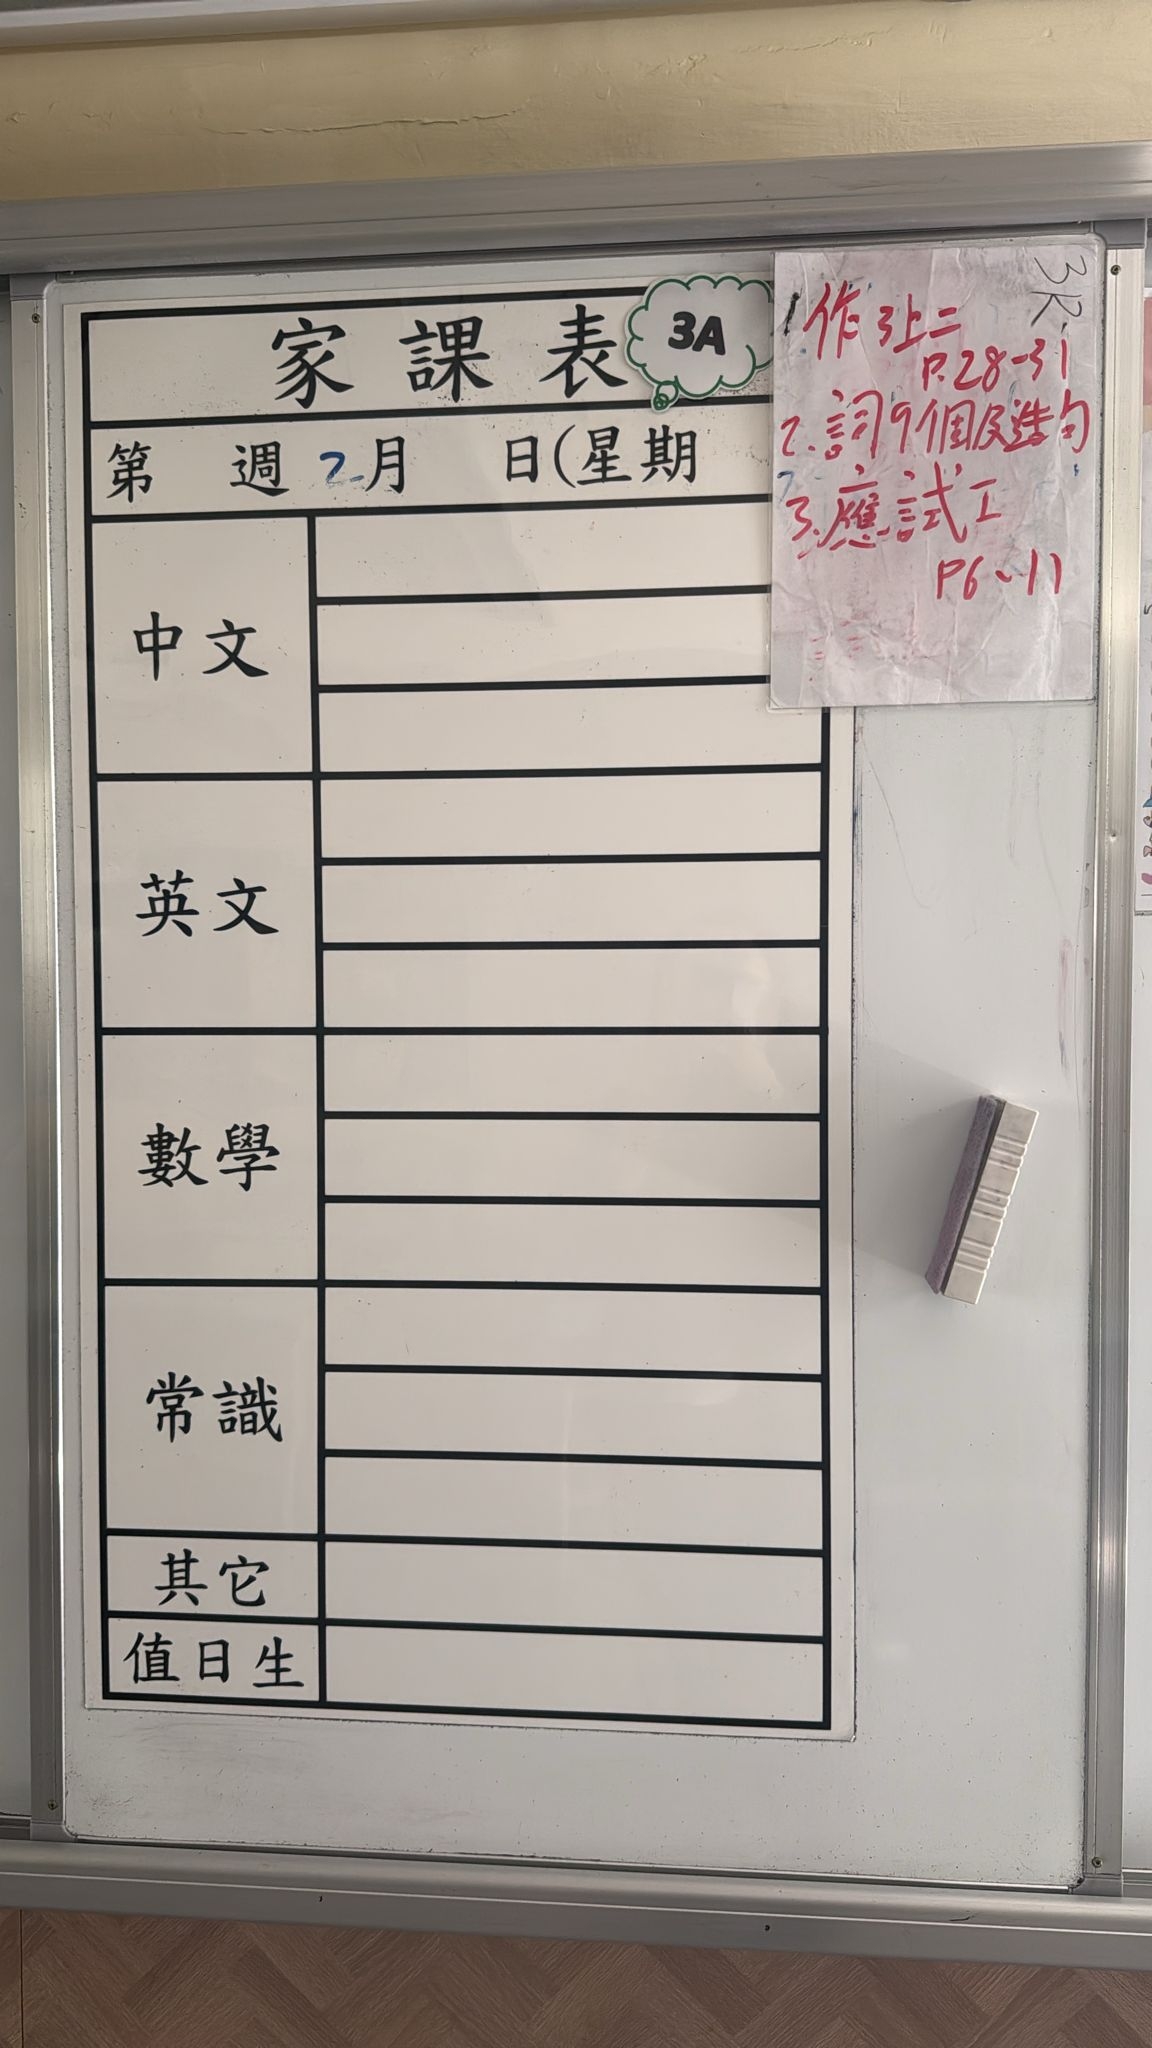 家課表
3A
第 週 2月 日(星期
中文
英文
數學
常識
其它
值日生
3K
1.作 3上二
P.28-31
2.詞9個及造句
3.應試工
P6、11